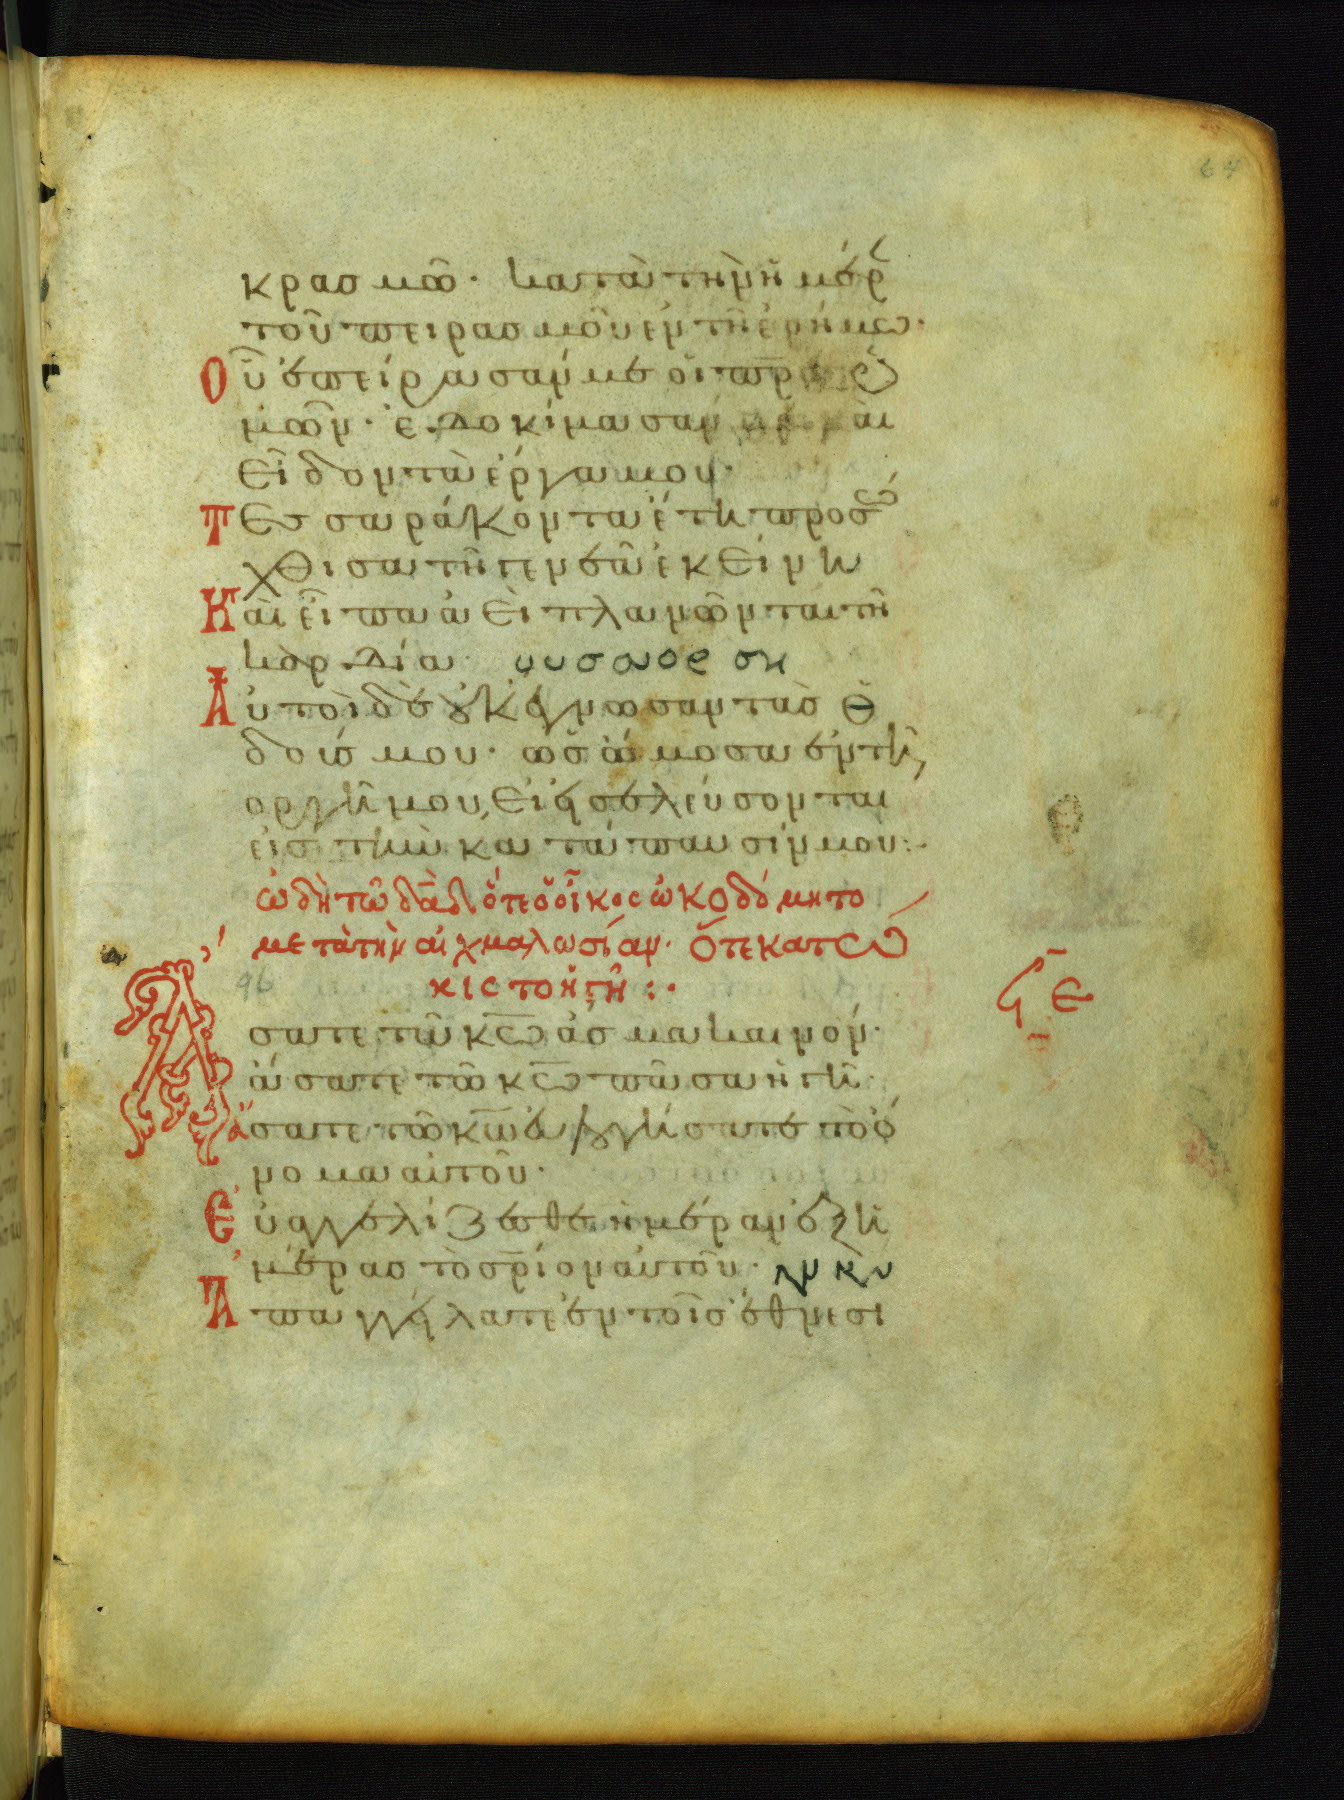 64
κρασμῶ· κατὰ τὴν ἡμέρ
τοῦ πειρασμοῦ ἐν τῆ ἐρήμω·
Οὗ ἐπείρασάν με οἱ πρ̅ε̅ς ὑ
μῶν· ἐδοκίμασάν με καὶ
εἶδον τὰ ἔργα μου·
Τεσσαράκοντα ἔτη προσώ
χθισα τῆ γενεᾶ ἐκείνη
Καὶ εἶπα ἀεὶ πλανῶνται τῆ
καρδία
Αὐτοὶ δὲ οὐκ ἔγνωσαν τὰς ὁ
δούς μου· ὡς ὤμοσα ἐν τῆ
ὀργῆ μου, εἰ εἰσελεύσονται
εἰς τὴν κατάπαυσίν μου:
ὠδὴ τῶ δα̅δ̅ ὅτε ὁ οἶκος ὠκοδόμητο
μετὰ τὴν αἰχμαλωσίαν· ὅτε κατω
κιστο ἡ γῆ:·
96
ϟε
Ἄσατε τῶ κ̅ω̅ ἆσμα καινόν·
ἄσατε τῶ κ̅ω̅ πᾶσα ἡ γῆ
ἄσατε τῶ κ̅ω̅ εὐλογήσατε τὸ ὄ
νομα αὐτοῦ·
Εὐαγγελίζεσθε ἡμέραν ἐξ ἡ
μέρας τὸ σ̅ρ̅ιον αὐτοῦ·
Ἀπαγγείλατε ἐν τοῖς ἔθνεσι